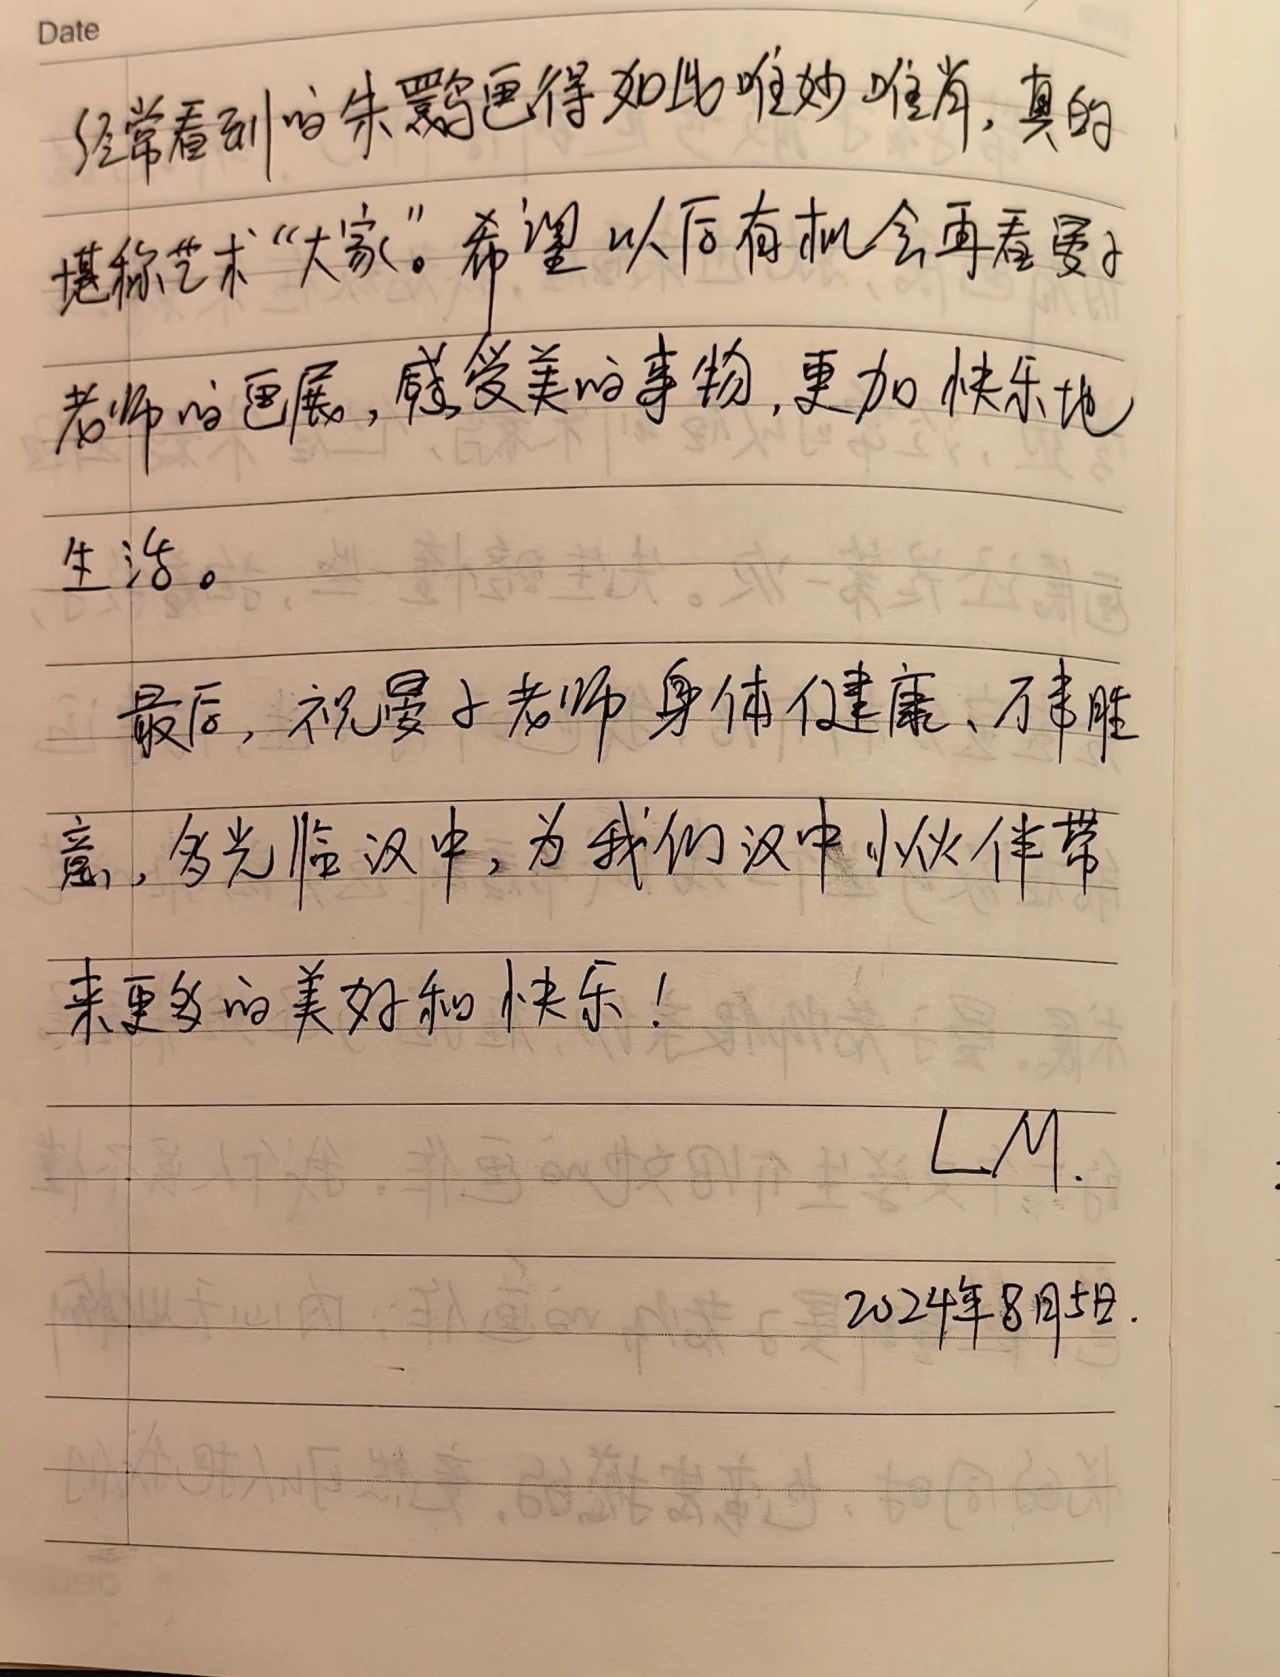 Date
经常看到的朱鹮画得如此唯妙唯肖，真的
堪称艺术“大家”。希望以后有机会再看晏子
老师的画展，感受美的事物，更加快乐地
生活。
最后，祝晏子老师身体健康、万事胜
意，多光临汉中，为我们汉中小伙伴带
来更多的美好和快乐！
LM.
2024年8月5日.